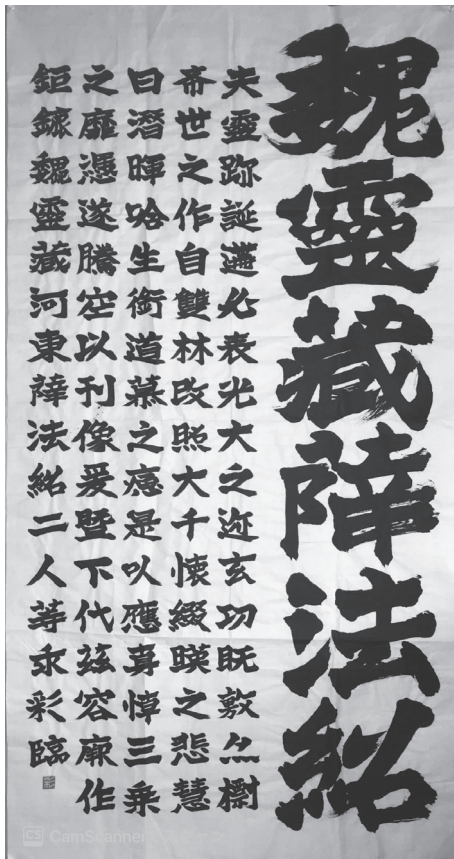 魏靈藏薛法紹
夫靈跡誕遘必表光大之迹玄功既敷亦標
希世之作自雙林改照大千懷綴暎之悲慧
日潛暉哈生銜道慕之痛是以應真悼三乘
之靡憑遂騰空以刊像爰暨下代茲容厥作
鉅鹿魏靈藏河東薛法紹二人等永彩臨
CS CamScanner でスキャン